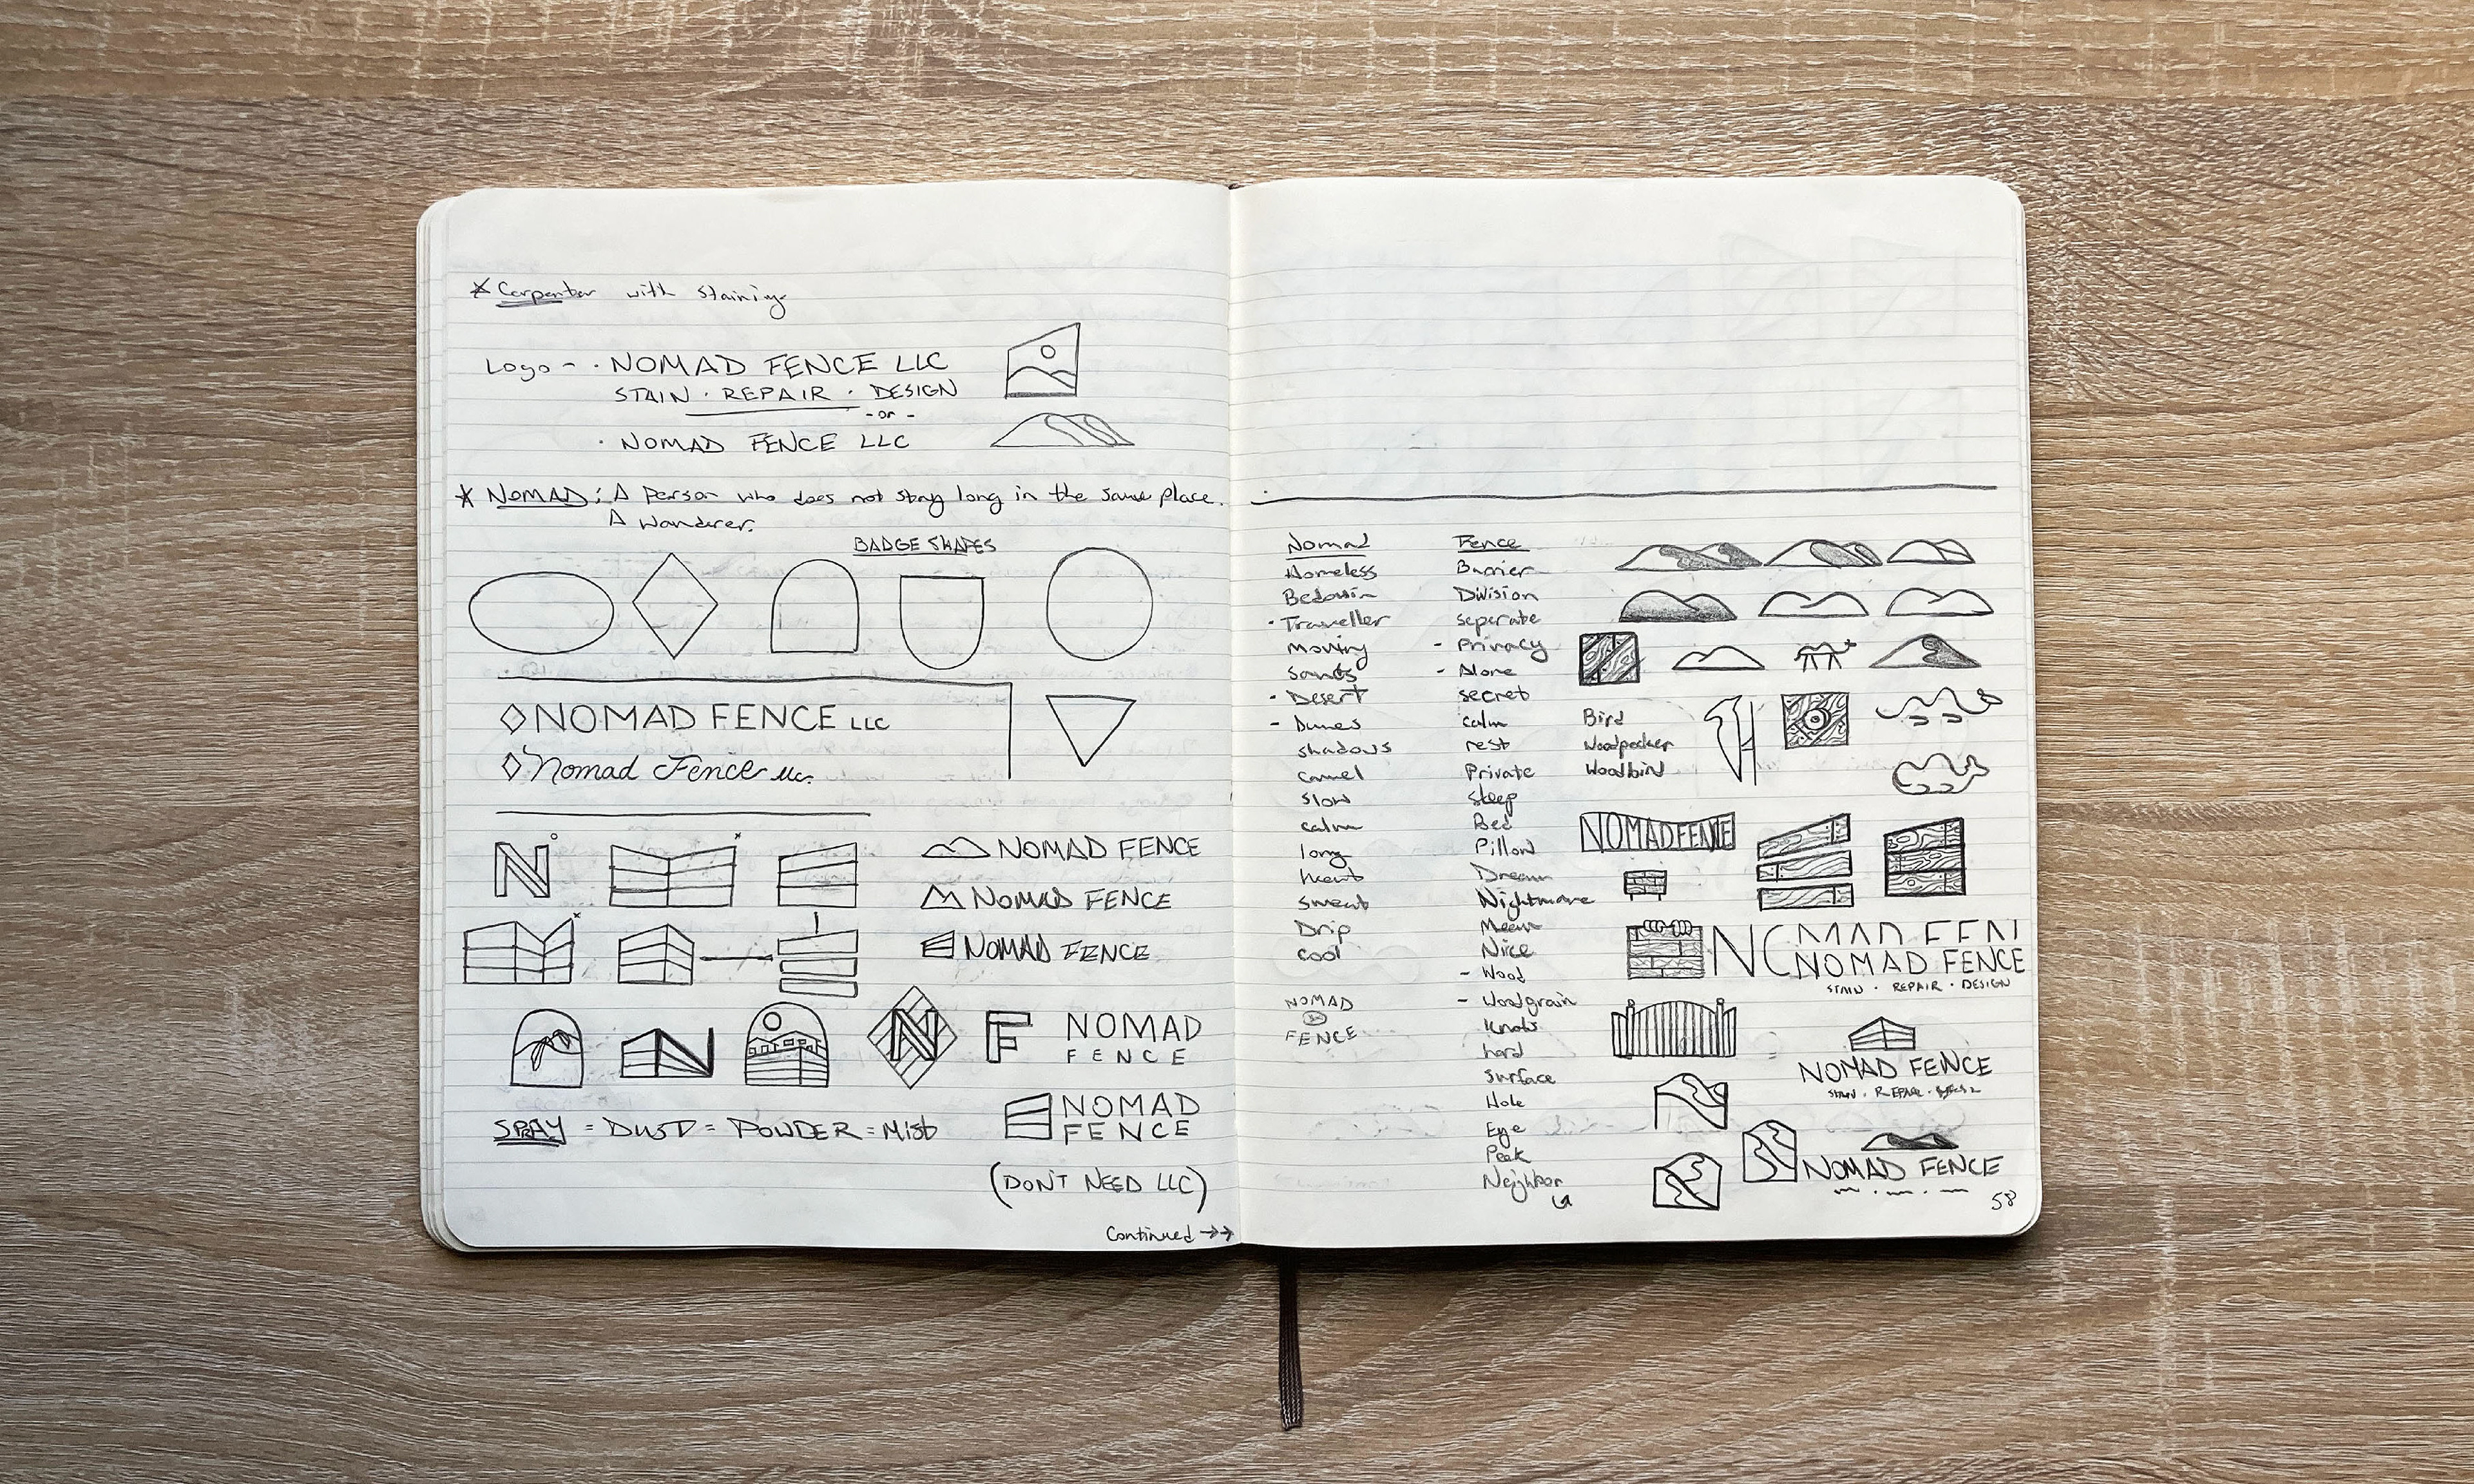 * Carpenter with staining
Logo - · NOMAD FENCE LLC
STAIN · REPAIR · DESIGN
- or -
· NOMAD FENCE LLC
* NOMAD: A person who does not stay long in the same place.
A wanderer.
BADGE SHAPES
NOMAD FENCE LLC
Nomad Fence LLC.
N
NOMAD FENCE
NOMAD FENCE
NOMAD FENCE
N
N
F
NOMAD
FENCE
NOMAD
FENCE
SPRAY = DUST = POWDER = MIST
(DON'T NEED LLC)
Continued →→
Nomad
Homeless
Bedouin
· Traveller
moving
sands
- Desert
- Dunes
shadows
camel
slow
calm
long
heat
sweat
Drip
cool
NOMAD
FENCE
Fence
Barrier
Division
seperate
- Privacy
- Alone
secret
calm
rest
Private
sleep
Bed
Pillow
Dream
Nightmare
Mean
Nice
- Wood
- Woodgrain
Knots
hard
surface
Hole
Eye
Peek
Neighbor
Bird
Woodpecker
Woodbird
NOMAD FENCE
NOMAD FENCE
STAIN · REPAIR · DESIGN
NOMAD FENCE
STAIN · REPAIR ·
NOMAD FENCE
58